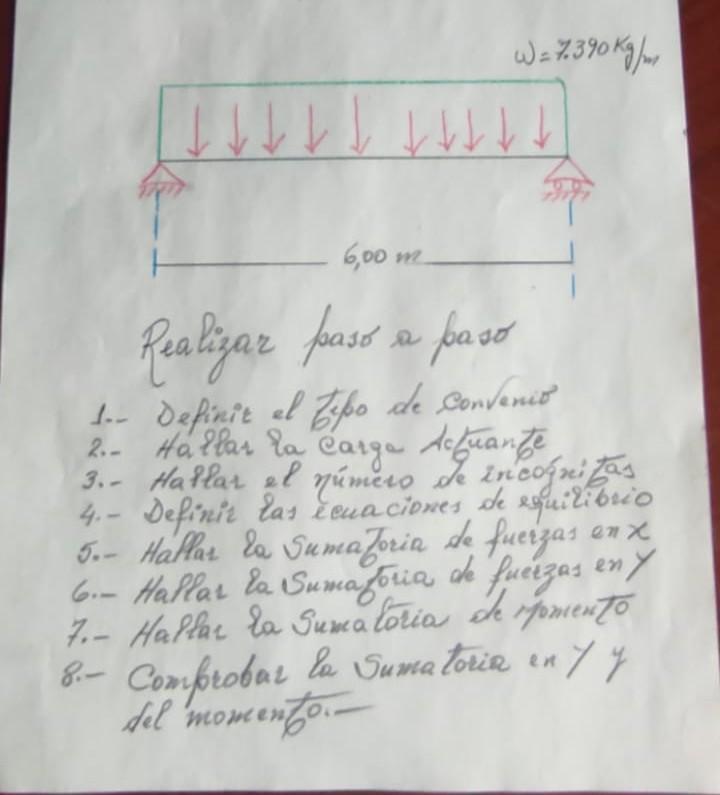 W=7.390 Kg/m
6,00 m
Realizar paso a paso
1.- Definir el tipo de convenio
2.- Hallar la carga Actuante
3.- Hallar el número de incognitas
4.- Definir las ecuaciones de equilibrio
5.- Hallar la Sumatoria de fuerzas en X
6.- Hallar la Sumatoria de fuerzas en Y
7.- Hallar la Sumatoria de Momento
8.- Comprobar la Sumatoria en Y y
del momento.-